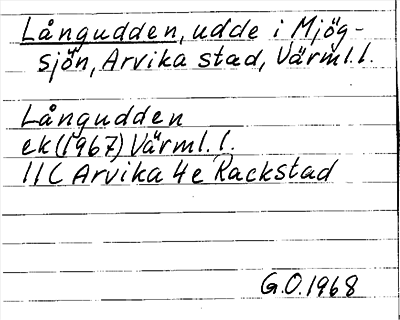 Långudden, udde i Mjög-
sjön, Arvika stad, Värml. l.
Långudden
ek (1967) Värml. l.
11C Arvika 4e Rackstad
G.O. 1968